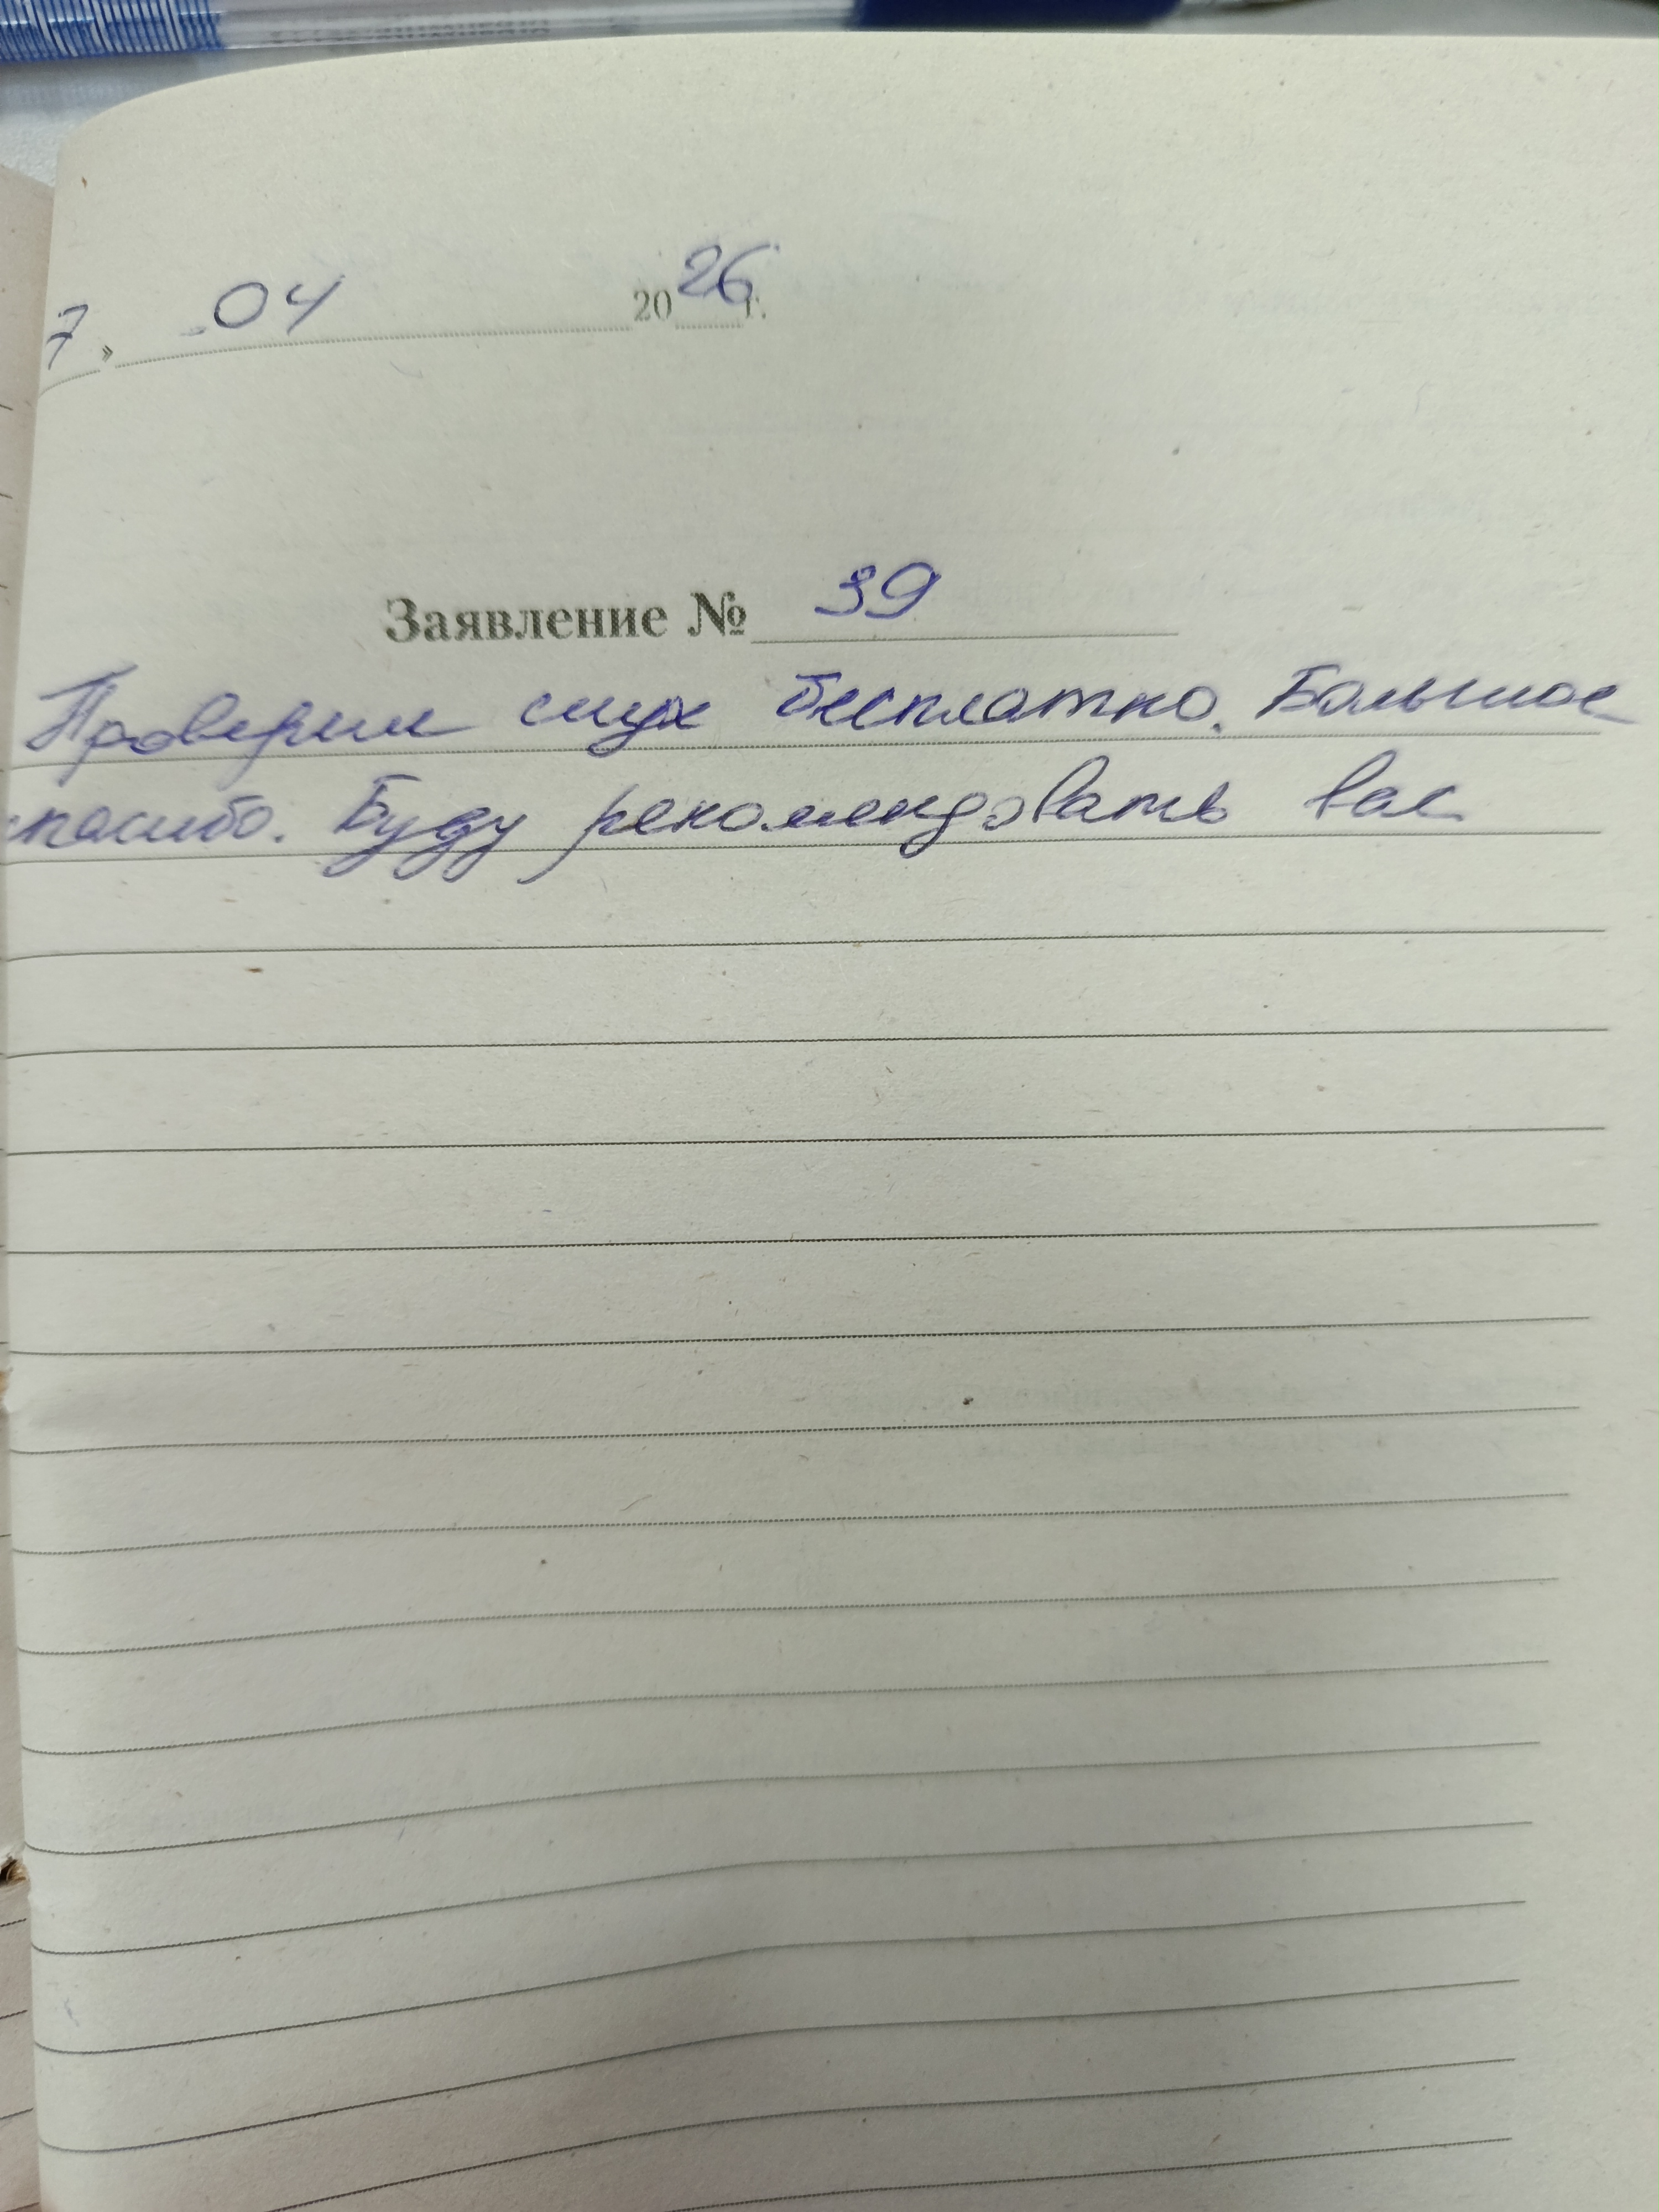 7 » .04 2026 г.
Заявление № 39
Проверили слух бесплатно. Большое
спасибо. Буду рекомендовать вас